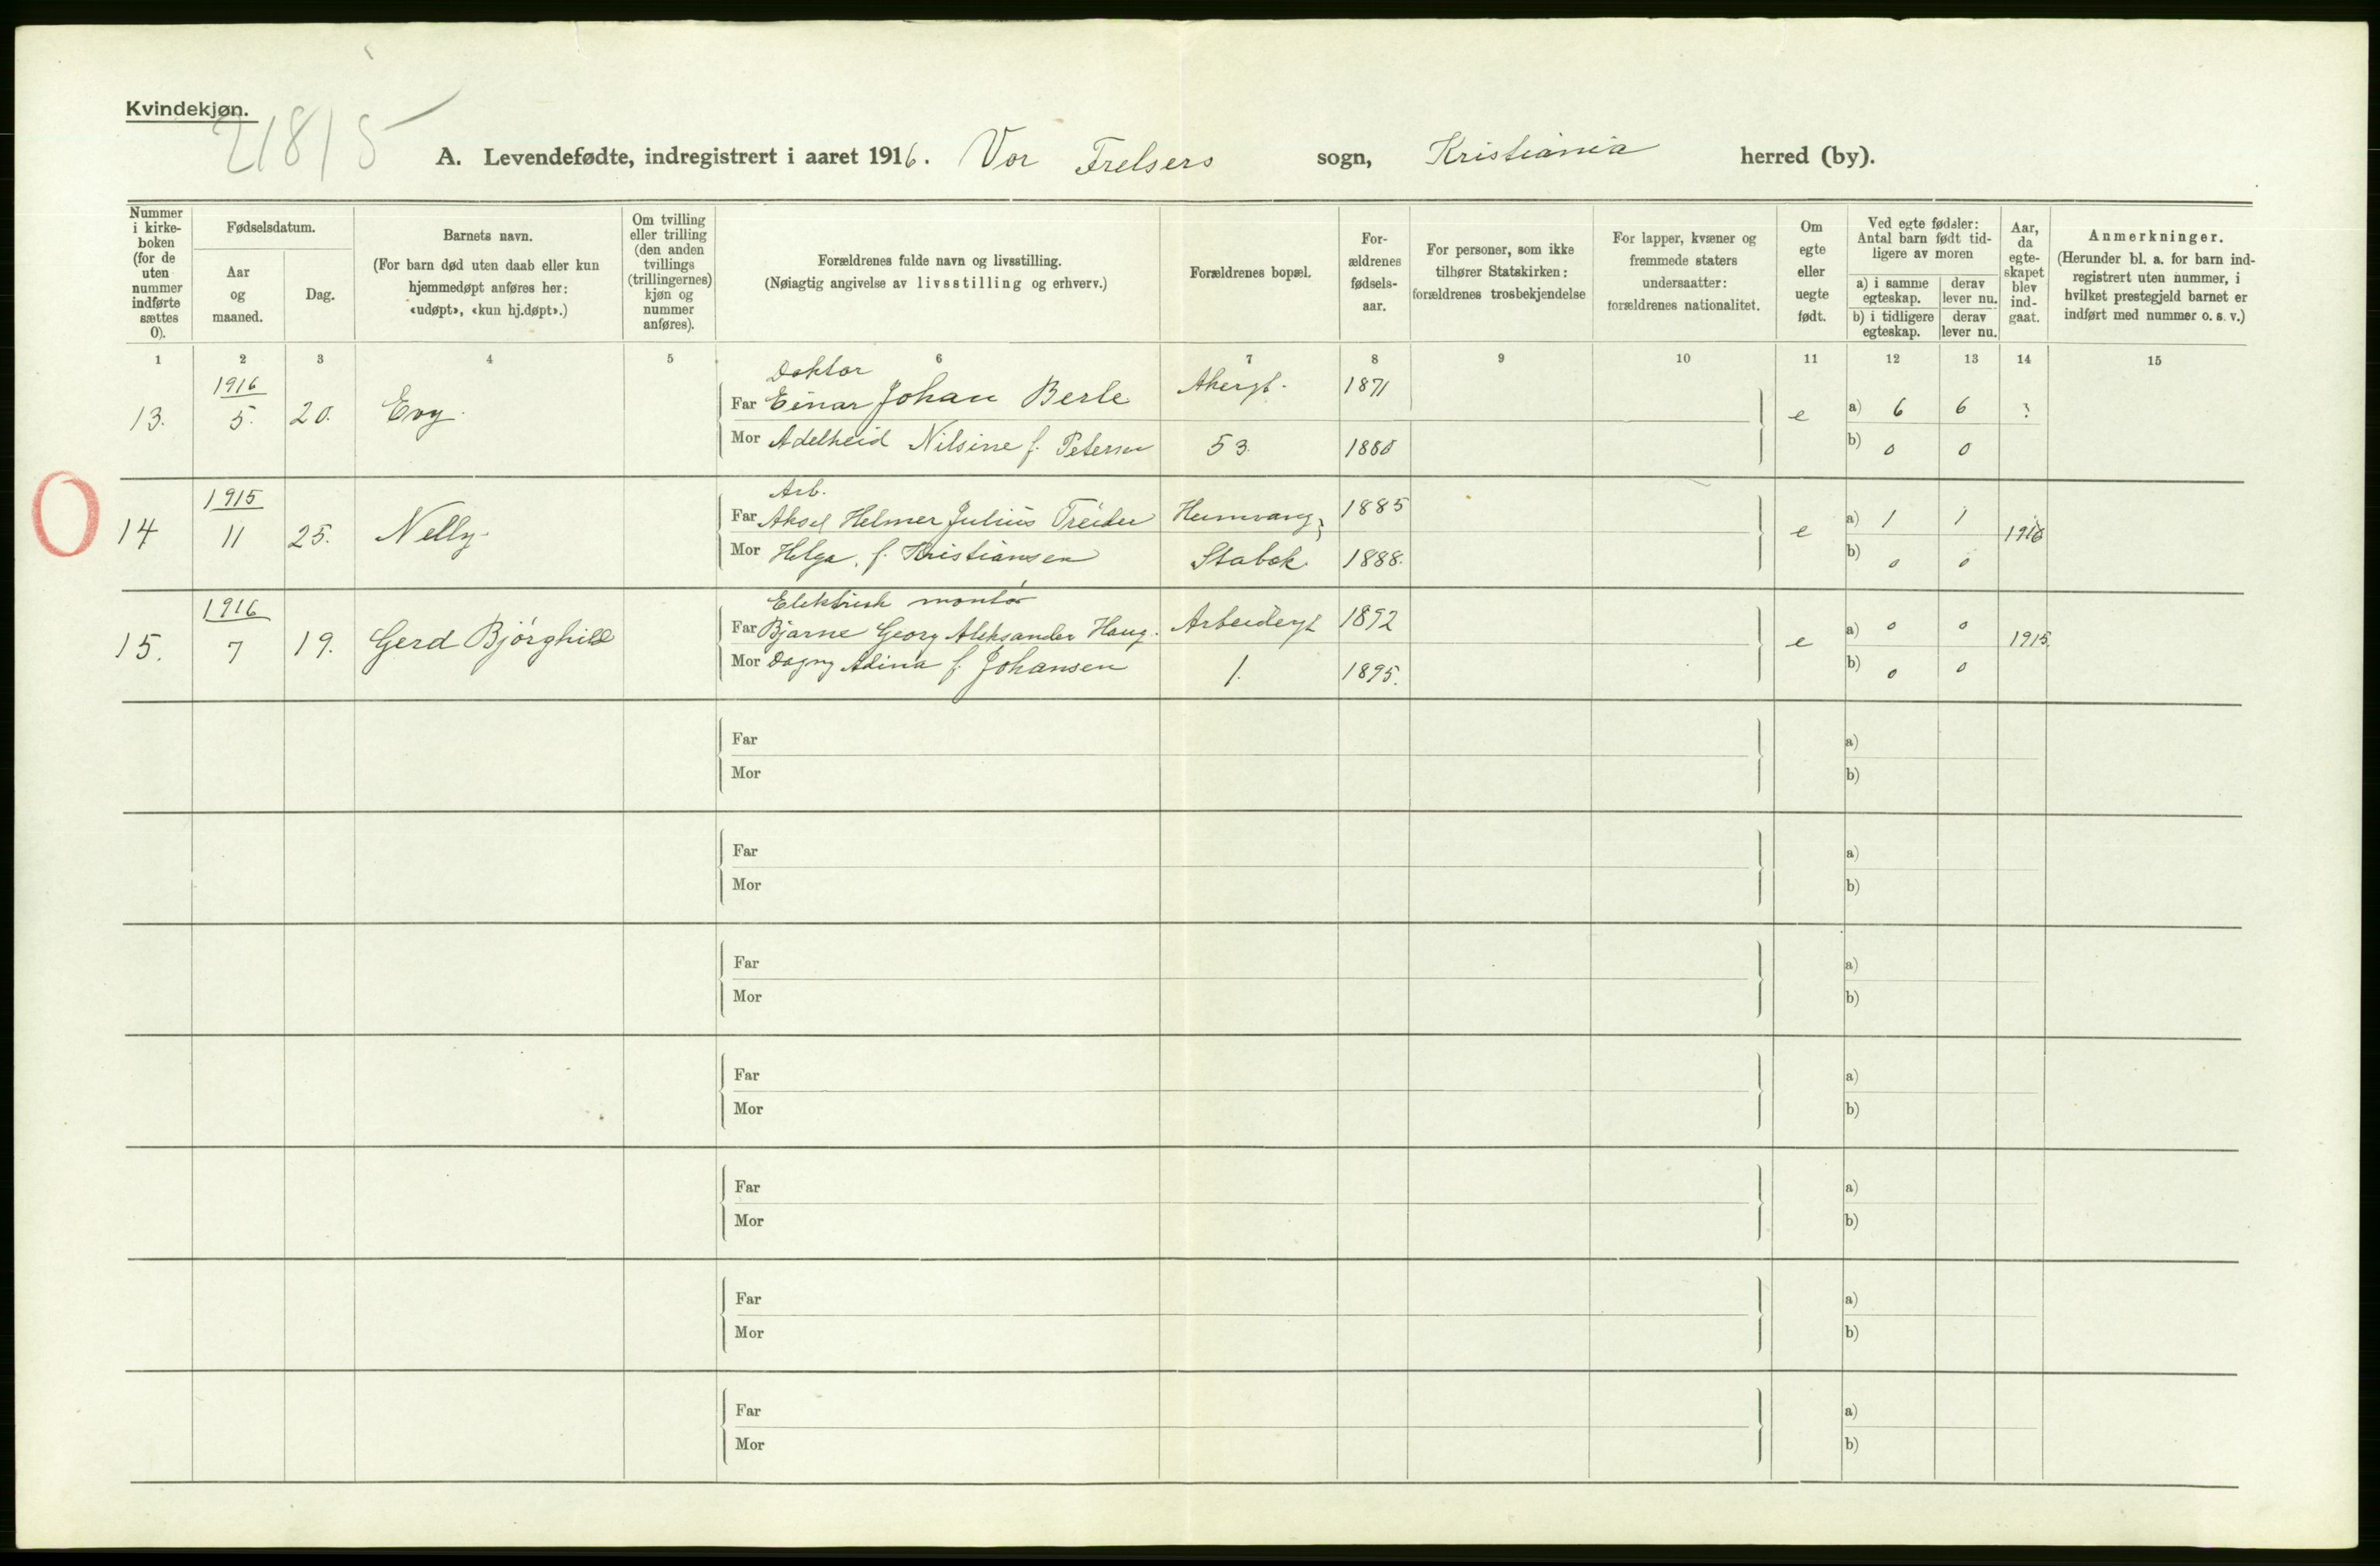 Kvindekjøn.
21815
A. Levendefødte, indregistrert i aaret 1916. Vor Frelsers sogn, Kristiania herred (by).
Nummer i kirke-boken (for de uten nummer indførte sættes 0).
Fødselsdatum.
Aar og maaned.
Dag.
Barnets navn.
(For barn død uten daab eller kun hjemmedøpt anføres her: «udøpt», «kun hj.døpt».)
Om tvilling eller trilling (den anden tvillings (trillingernes) kjøn og nummer anføres).
Forældrenes fulde navn og livsstilling.
(Nøiagtig angivelse av livsstilling og erhverv.)
Forældrenes bopæl.
For-ældrenes fødsels-aar.
For personer, som ikke tilhører Statskirken: forældrenes trosbekjendelse
For lapper, kvæner og fremmede staters undersaatter: forældrenes nationalitet.
Om egte eller uegte født.
Ved egte fødsler: Antal barn født tid-ligere av moren
a) i samme egteskap.
derav lever nu.
b) i tidligere egteskap.
derav lever nu.
Aar, da egte-skapet blev ind-gaat.
Anmerkninger.
(Herunder bl. a. for barn ind-registrert uten nummer, i hvilket prestegjeld barnet er indført med nummer o. s. v.)
1 2 3 4 5 6 7 8 9 10 11 12 13 14 15
1916
Doktor
13. 5. 20. Evy.
Far Einar Johan Berle Akersg. 1871
e a) 6 6 ?
Mor Adelheid Nilsine f. Petersen 53. 1880
b) 0 0
1915
Arb.
14 11 25. Nelly.
Far Aksel Helmer Julius Treider 1885
e a) 1 1 1916
Mor Helga, f. Kristiansen Stabæk. 1888.
b) 0 0
1916
Elektrisk montør
15. 7 19. Gerd Bjørghild
Far Bjarne Georg Aleksander Haug. Arbeiderg. 1892
e a) 0 0 1915.
Mor Dagny Adina f. Johansen 1. 1895.
b) 0 0
Far
a)
Mor
b)
Far
a)
Mor
b)
Far
a)
Mor
b)
Far
a)
Mor
b)
Far
a)
Mor
b)
Far
a)
Mor
b)
Far
a)
Mor
b)